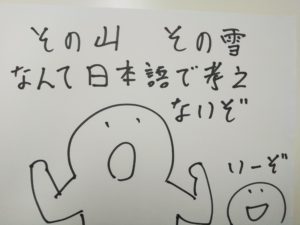 その山　その雪
なんて日本語で考え
ないぞ
いーぞ